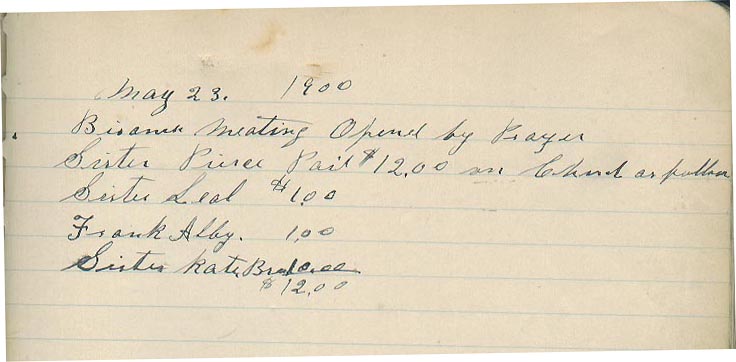 May 23. 1900
Meating Opend by Prayer
Sister Pierce Paid $12.00 on Church as follow
Sister Leal $1.00
Frank Alby. 1.00
Sister Kate 10.00
$12.00